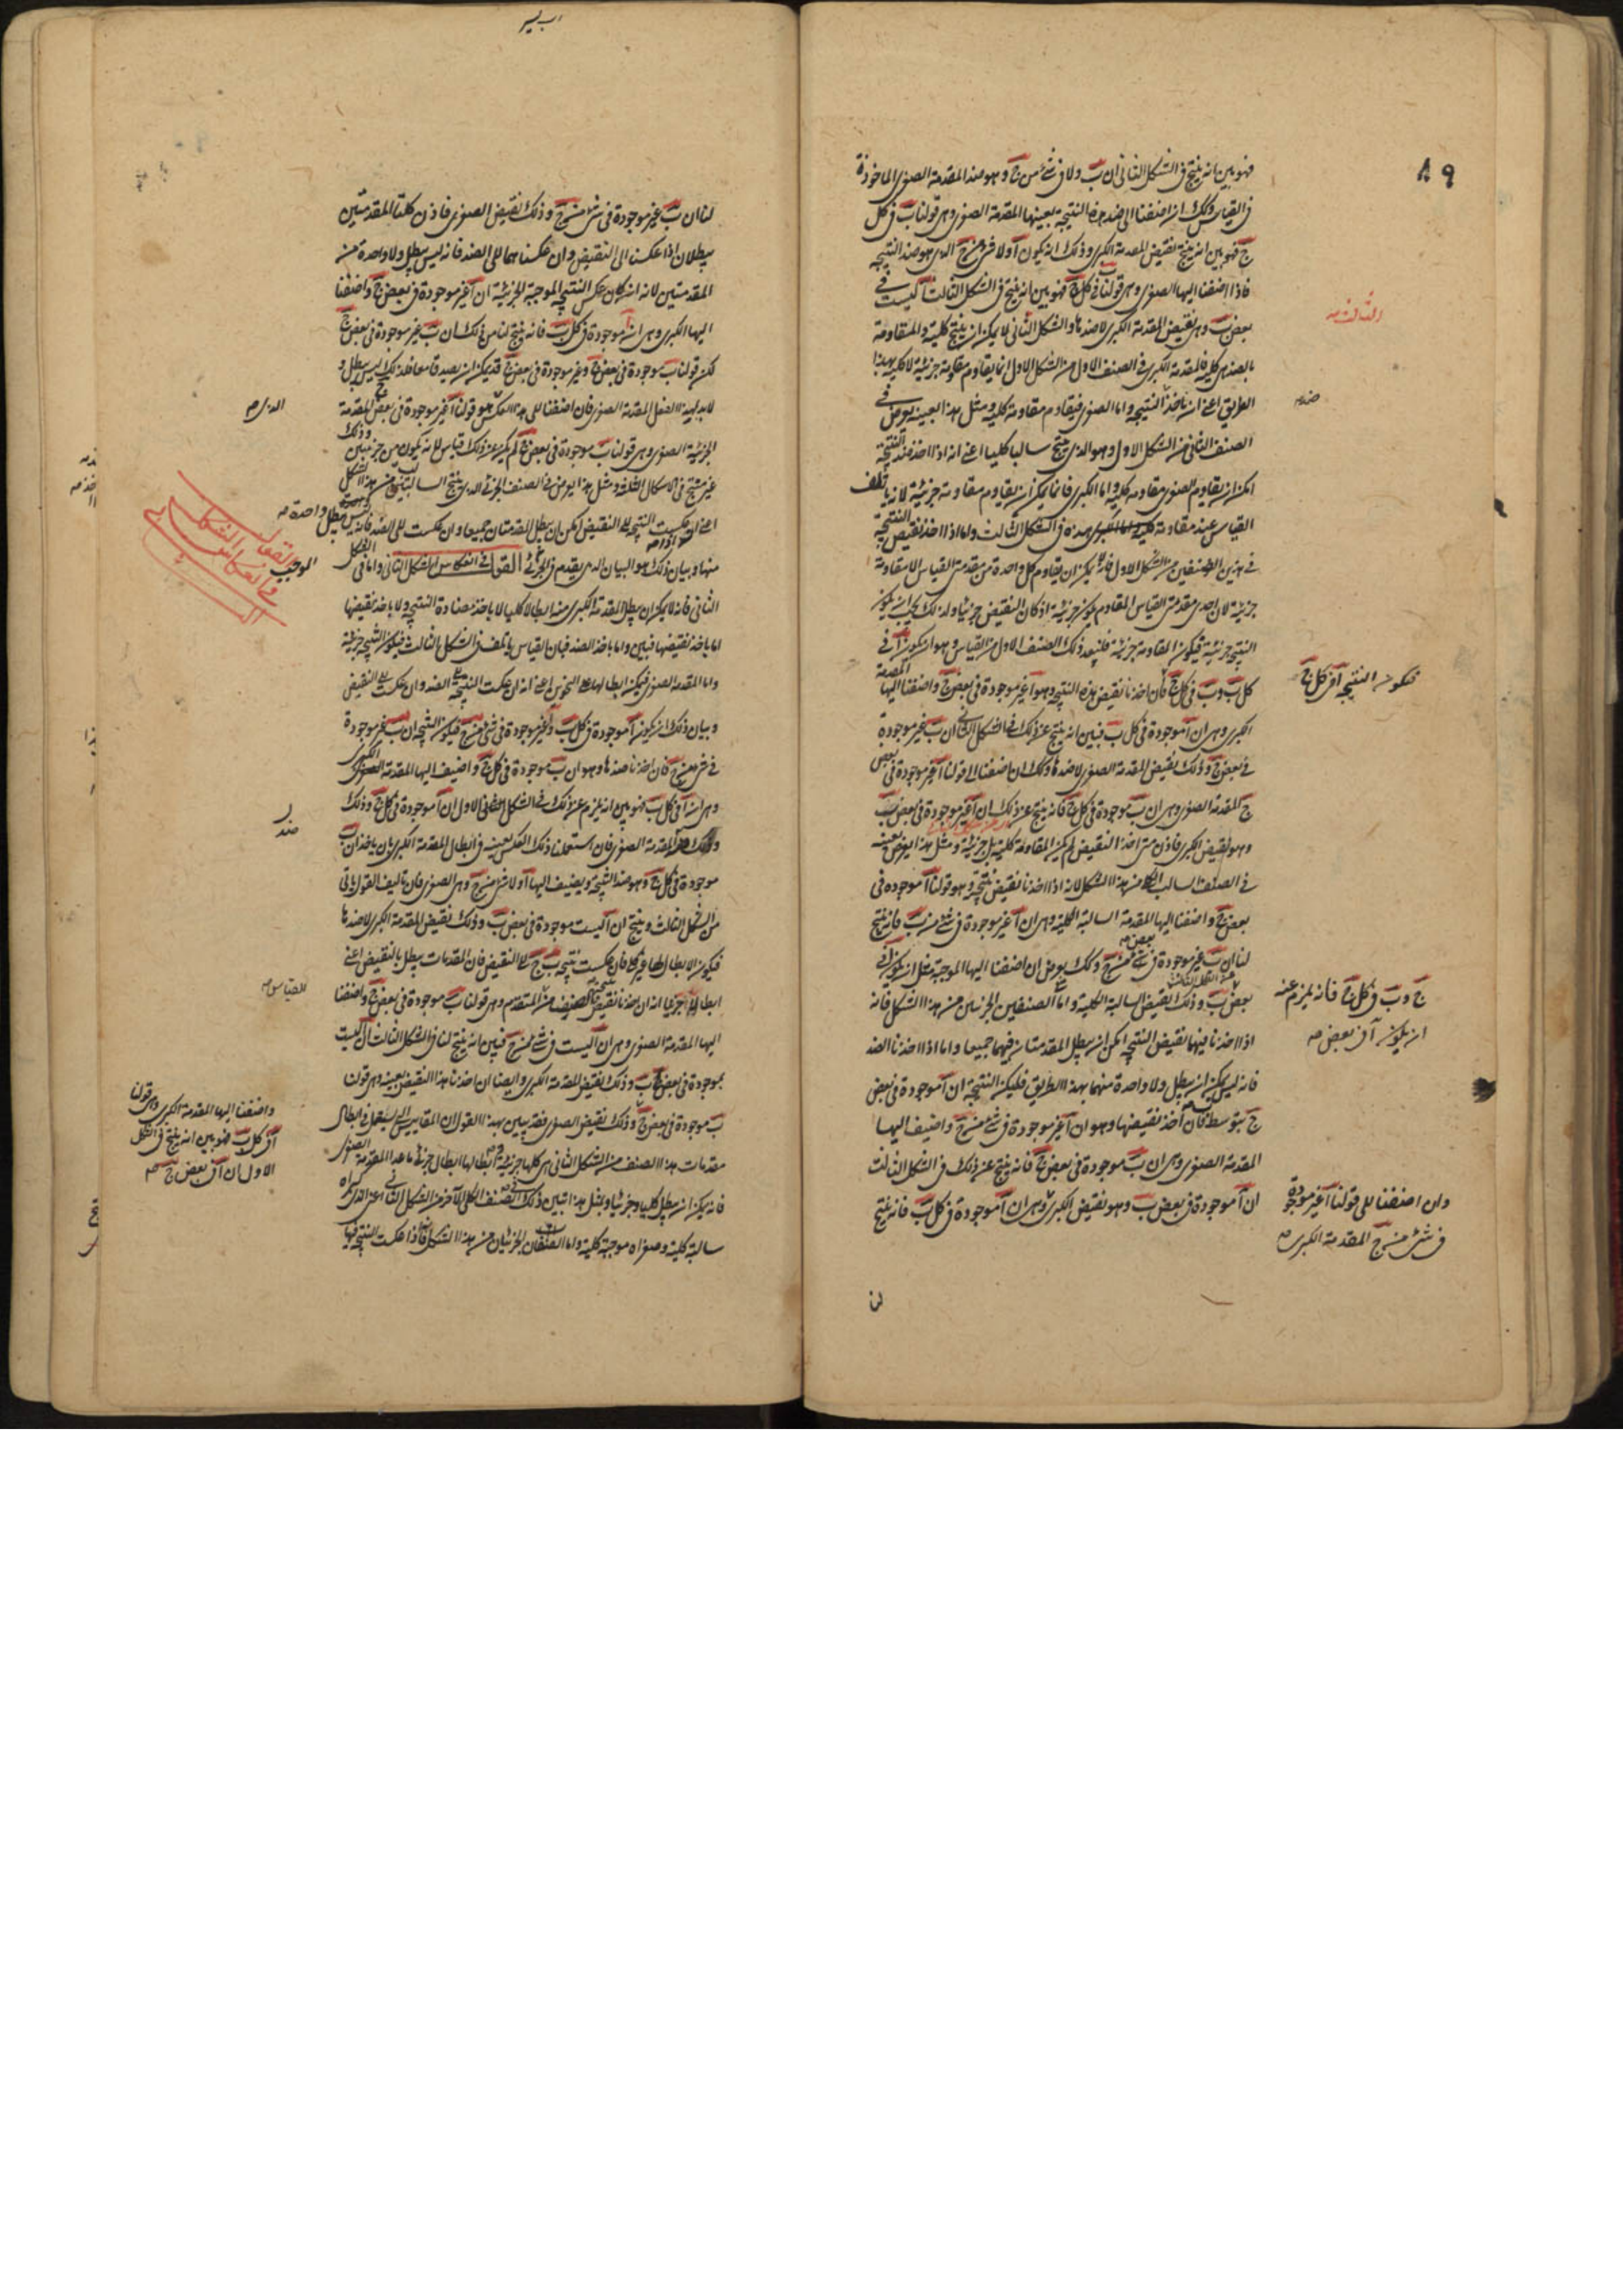 ٨٩
فهو بين انه ينتج فى الشكل الثانى ان ب ولا فى شئ من ج وهو ضد المقدمة الصغرى الماخوذة
فى القياس وكذلك ان اضفنا الى ضد هذه النتيجة بعينها المقدمة الصغرى وهى قولنا ب فى كل
ج فهو بين انه ينتج نقيض المقدمة الكبرى وذلك انه يكون آ ولا فى شئ من ج الذى هو ضد النتيجة
فاذا اضفنا اليها الصغرى وهى قولنا ب فى كل ج فهو بين انه ينتج فى الشكل الثالث آ ليست فى
بعض ب وهى نقيض المقدمة الكبرى لا ضدها والشكل الثانى لا يمكن ان ينتج كلية والمقاومة
بالضد هى كلية فالمقدمة الكبرى فى الصنف الاول من الشكل الاول انما يقاوم مقاومة جزئية لا كلية بهذا
الطريق اعنى ان ناخذ ضد النتيجة واما الصغرى فيقاوم مقاومة كلية ومثل هذا بعينه يعرض فى
الصنف الثانى من الشكل الاول وهو الذى ينتج سالبا كليا اعنى انه اذا اخذ ضد النتيجة
امكن ان يقاوم الصغرى مقاومة كلية واما الكبرى فانما يمكن ان يقاوم مقاومة جزئية لانه ياتلف
القياس عند مقاومة الكبرى هذه فى الشكل الثالث واما اذا اخذ نقيض النتيجة
فى هذين الصنفين من الشكل الاول فانه لا يمكن ان تقاوم كل واحدة من مقدمتى القياس الا مقاومة
جزئية لان احدى مقدمتى القياس المقاوم يكون جزئية اذ كان النقيض جزئيا ولذلك يجب ان يكون
النتيجة جزئية فيكون المقاومة جزئية فلنعد ذلك الصنف الاول من القياس وهو ان يكون آ فى
كل ب وب فى كل ج فان اخذنا نقيض هذه النتيجة وهو آ غير موجودة فى بعض ج واضفنا اليها المقدمة
الكبرى وهى ان آ موجودة فى كل ب فبين انه ينتج عن ذلك فى الشكل الثانى ان ب غير موجودة
فى بعض ج وذلك نقيض المقدمة الصغرى لا ضدها وكذلك ان اضفنا الى قولنا آ غير موجودة فى بعض
ج المقدمة الصغرى وهى ان ب موجودة فى كل ج فانه ينتج عن ذلك ان آ غير موجودة فى بعض ب
وهو نقيض الكبرى فاذن متى اخذ النقيض لم يكن المقاومة كلية بل جزئية ومثل هذا يعرض بعينه
فى الصنف السالب الكلى من هذا الشكل لانه اذا اخذنا نقيض نتيجته وهو قولنا آ موجودة فى
بعض ج واضفنا اليها المقدمة السالبة الكلية وهى ان آ غير موجودة فى شئ من ب فانه ينتج
لنا ان ب غير موجودة فى بعض ج وكذلك يعرض ان اضفنا اليها الموجبة مثل ان يكون آ فى
بعض ب وذلك نقيض السالبة الكلية واما فى الصنفين الجزئيين من هذا الشكل فانه
اذا اخذنا فيهما نقيض النتيجة امكن ان يبطل المقدمتان فيهما جميعا واما اذا اخذنا الضد
فانه ليس يمكن ان يبطل ولا واحدة منهما بهذا الطريق فليكن النتيجة ان آ موجودة فى بعض
ج بتوسط ب فان اخذ نقيضها وهو ان آ غير موجودة فى شئ من ج واضيف اليها
المقدمة الصغرى وهى ان ب موجودة فى بعض ج فانه ينتج عن ذلك فى الشكل الثالث
ان آ موجودة فى بعض ب وهو نقيض الكبرى وهى ان آ موجودة فى كل ب فانه ينتج
لنا
الثالث صح
ضد صح
فيكون النتيجة آ فى كل ج
ج وب فى كل ج فانه يلزم عنه
ان يكون آ فى بعض صح
وان اضفنا الى قولنا آ غير موجودة
فى شئ من ج المقدمة الكبرى صح
لنا ان ب غير موجودة فى شئ من ج وذلك نقيض الصغرى فاذن كلتا المقدمتين
يبطلان اذا عكسنا الى النقيض وان عكسناهما الى الضد فانه ليس يبطل ولا واحدة من
المقدمتين لانه ان كان عكس النتيجة الموجبة الجزئية ان آ غير موجودة فى بعض ج واضفنا
اليها الكبرى وهى ان آ موجودة فى كل ب فانه ينتج لنا من ذلك ان ب غير موجودة فى بعض ج
لكن قولنا ب موجودة فى بعض ج وغير موجودة فى بعض ج قد يمكن ان يصدقا معا فلذلك ليس يبطل
الجزئية الصغرى وهى قولنا ب موجودة فى بعض ج لم يكن عن ذلك قياس لانه يكون من جزئيتين وذلك
غير منتج فى الاشكال الثلثة ومثل هذا يعرض فى الصنف الجزئى الذى ينتج السالب من هذا الشكل
اعنى ان عكست النتيجة الى النقيض امكن ان يبطل المقدمتان جميعا وان عكست الى الضد فانه ليس يبطل واحدة صح
منها وبيان ذلك هو البيان الذى تقدم فى الجزئى القول فى انعكاس الشكل الثانى واما فى الشكل
الثانى فانه لا يمكن ان يبطل المقدمة الكبرى منه ابطالا كليا لا باخذ مضادة النتيجة ولا باخذ نقيضها
اما باخذ نقيضها فبين واما باخذ الضد فبان القياس ياتلف فى الشكل الثالث فيكون النتيجة جزئية
واما المقدمة الصغرى فيمكن ابطالها على النحوين اعنى انه ان عكست النتيجة الى الضد وان عكست الى النقيض
وبيان ذلك ان يكون آ موجودة فى كل ب وغير موجودة فى شئ من ج فيكون النتيجة ان ب غير موجودة
فى شئ من ج فان اخذنا ضدها وهو ان ب موجودة فى كل ج واضيف اليها المقدمة الكبرى
وهى ان آ فى كل ب فهو بين انه يلزم عن ذلك فى الشكل الاول ان آ موجودة فى كل ج وذلك
المقدمة الصغرى فان استعملنا ذلك العكس بعينه فى ابطال المقدمة الكبرى بان ياخذ ان ب
موجودة فى كل ج وهو ضد النتيجة ويضيف اليها آ ولا فى شئ من ج وهى الصغرى فان تاليف القول ياتى
من الشكل الثالث وينتج ان آ ليست موجودة فى بعض ب وذلك نقيض المقدمة الكبرى لا ضدها
فيكون الابطال لها جزئيا فان عكست نتيجة ب ج الى النقيض فان المقدمات يبطل بالنقيض اعنى
ابطالا جزئيا انه ان اخذنا نقيض نتيجة الصنف المتقدم وهى قولنا ب موجودة فى بعض ج واضفنا
اليها المقدمة الصغرى وهى ان آ ليست فى شئ من ج فبين انه ينتج لنا فى الشكل الثالث ان آ ليست
بموجودة فى بعض ب وذلك نقيض المقدمة الكبرى وايضا ان اخذنا هذا النقيض بعينه وهى قولنا
ب موجودة فى بعض ج وذلك نقيض الصغرى فقد يبين بهذا القول ان المقاييس التى يستعمل فى ابطال
مقدمات هذا الصنف من الشكل الثانى هى كلها جزئية وابطالها ابطال جزئى ما عدا المقدمة الصغرى
فانه يمكن ان يبطل كليا وجزئيا وبمثل هذا يتبين ذلك فى الصنف الكلى الآخر من الشكل الثانى اعنى الذى كبراه
سالبة كلية وصغراه موجبة كلية واما الصنفان الجزئيان من هذا الشكل فاذا عكست النتيجة فيها
الذى صح
القول
فى انعكاس الشكل
ضد
القياس صح
واضفنا اليها المقدمة الكبرى وهى قولنا
آ فى كل ب فهو بين انه ينتج فى الشكل
الاول ان آ فى بعض ج صح